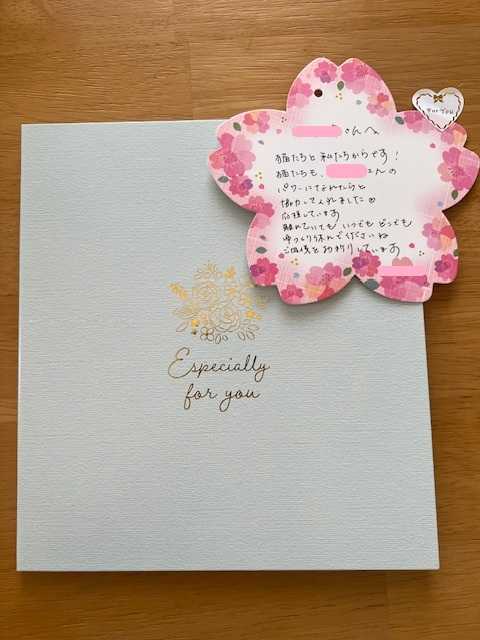 さんへ
猫たちと私たちからです！
猫たちも、さんの
パワーになれたらと
協力してくれました
応援しています
離れていても いつでも どこでも
ゆっくり休んでくださいね
ご回復をお祈りしています
For You
Especially
for you